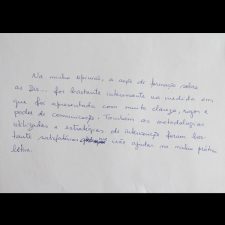 Na minha opinião, a ação de formação sobre
as Das... foi bastante interessante na medida em
que foi apresentada com muita clareza, rigor e
poder de comunicação. Também as metodologias
utilizadas e estratégias de intervenção foram bas-
tante satisfatórias irão ajudar na minha prática
letiva.